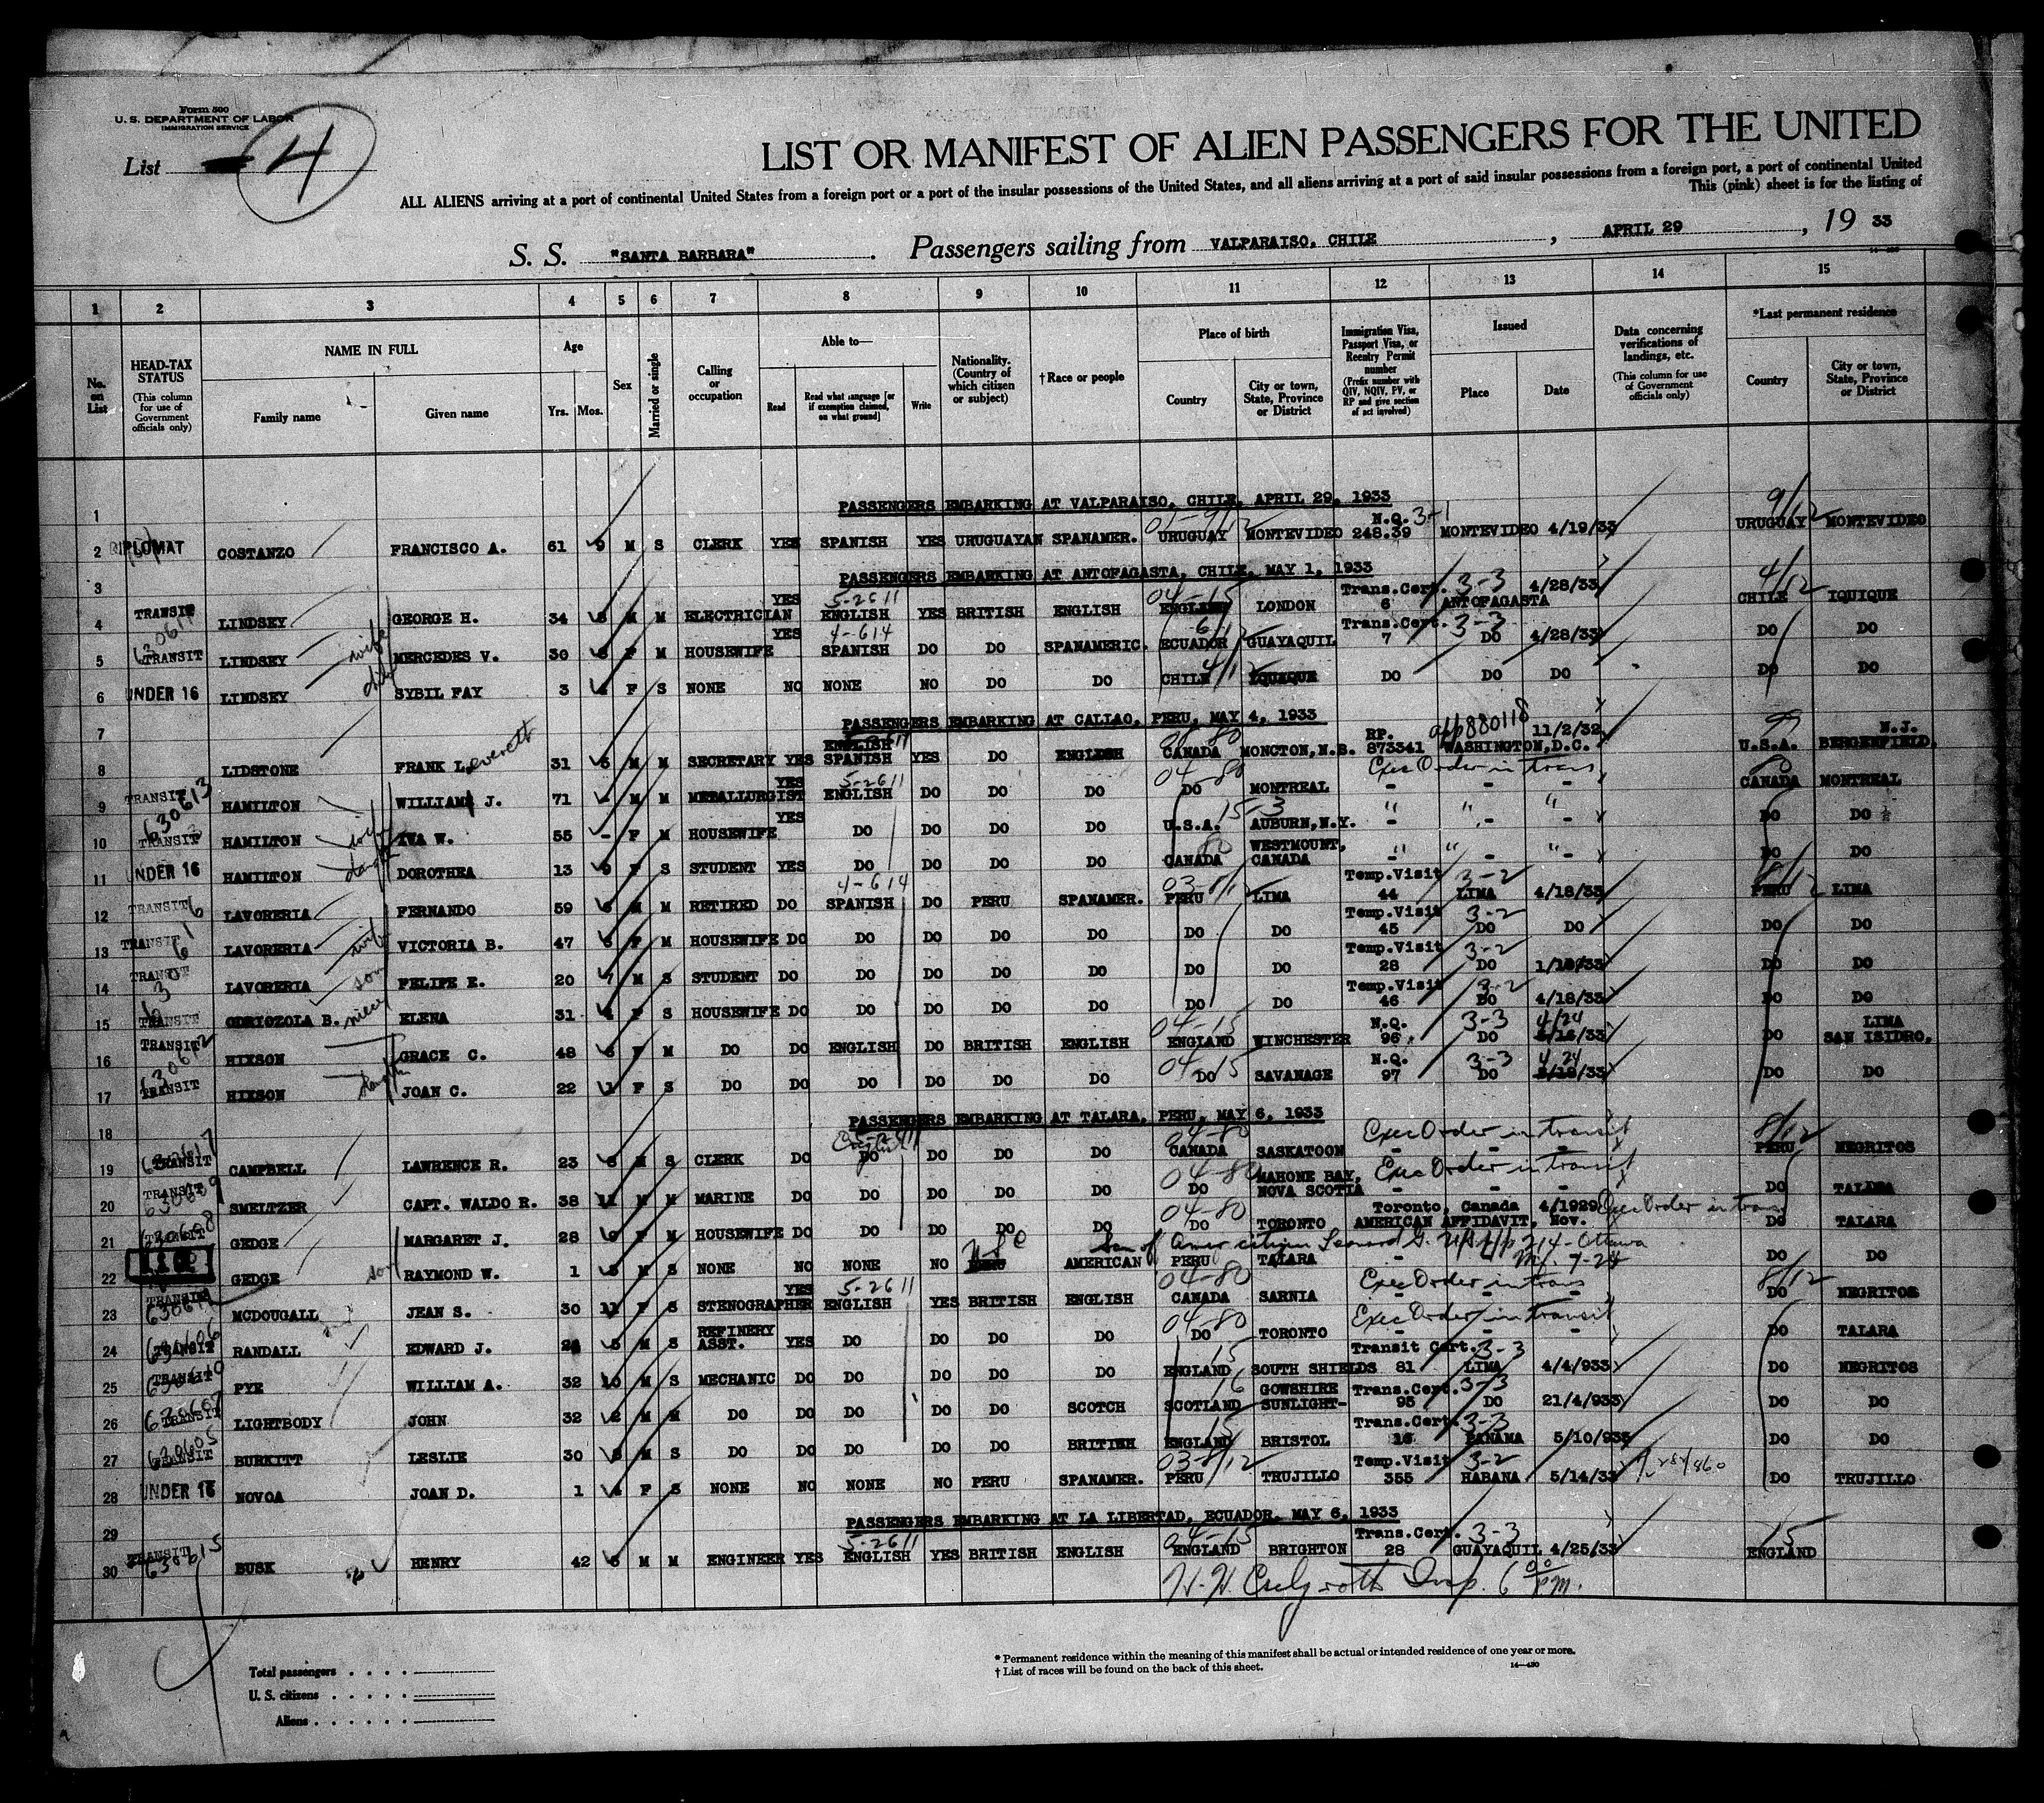 Form 500
U. S. DEPARTMENT OF LABOR
IMMIGRATION SERVICE
List 4
LIST OR MANIFEST OF ALIEN PASSENGERS FOR THE UNITED
ALL ALIENS arriving at a port of continental United States from a foreign port or a port of the insular possessions of the United States, and all aliens arriving at a port of said insular possessions from a foreign port, a port of continental United
This (pink) sheet is for the listing of
S. S. "SANTA BARBARA". Passengers sailing from VALPARAISO, CHILE, APRIL 29, 19 33
1 2 3 4 5 6 7 8 9 10 11 12 13 14 15
No. on List
HEAD-TAX STATUS (This column for use of Government officials only)
NAME IN FULL
Family name Given name
Age Yrs. Mos.
Sex
Married or single
Calling or occupation
Able to—
Read Read what language [or if exemption claimed, on what ground] Write
Nationality. (Country of which citizen or subject)
†Race or people
Place of birth
Country City or town, State, Province or District
Immigration Visa, Passport Visa, or Reentry Permit number (Prefix number with QIV, NQIV, PV, or RP and give section of act involved)
Issued
Place Date
Data concerning verifications of landings, etc. (This column for use of Government officials only)
*Last permanent residence
Country City or town, State, Province or District
1 PASSENGERS EMBARKING AT VALPARAISO, CHILE, APRIL 29, 1933
2 DIPLOMAT COSTANZO FRANCISCO A. 61 9 M S CLERK YES SPANISH YES URUGUAYAN SPANAMER. URUGUAY MONTEVIDEO N.Q. 248.39 3-1 MONTEVIDEO 4/19/33 URUGUAY MONTEVIDEO
3 PASSENGERS EMBARKING AT ANTOFAGASTA, CHILE, MAY 1, 1933
4 TRANSIT LINDSEY GEORGE H. 34 M M ELECTRICIAN YES 5-2611 ENGLISH YES BRITISH ENGLISH 04-15 ENGLAND LONDON Trans.Cert. 6 3-3 ANTOFAGASTA 4/28/33 4/12 CHILE IQUIQUE
5 TRANSIT LINDSEY wife MERCEDES V. 30 F M HOUSEWIFE YES 4-614 SPANISH DO DO SPANAMERIC. ECUADOR GUAYAQUIL Trans.Cert. 7 3-3 DO 4/28/33 DO DO
6 UNDER 16 LINDSEY SYBIL FAY 3 F S NONE NO NONE NO DO DO CHILE 4/12 IQUIQUE DO DO DO DO DO
7 PASSENGERS EMBARKING AT CALLAO, PERU, MAY 4, 1933
8 LIDSTONE FRANK L. everett 31 M M SECRETARY YES ENGLISH SPANISH YES DO ENGLISH CANADA MONCTON, N.B. RP. 873341 WASHINGTON, D.C. 11/2/32 99 U.S.A. N.J. BERGENFIELD,
9 TRANSIT 630613 HAMILTON WILLIAM J. 71 - M M METALLURGIST YES 5-2611 ENGLISH DO DO DO 04-80 DO MONTREAL Exec Order in trans - - - CANADA MONTREAL
10 TRANSIT HAMILTON wife IVA W. 55 - F M HOUSEWIFE YES DO DO DO DO U.S.A. 15-3 AUBURN, N.Y. - - - DO DO
11 UNDER 16 HAMILTON daughter DOROTHEA 13 9 F S STUDENT YES DO DO DO DO 80 CANADA WESTMOUNT, CANADA - - - DO DO
12 TRANSIT LAVORERIA FERNANDO 59 M M RETIRED DO 4-614 SPANISH DO PERU SPANAMER. 03-8/12 PERU LIMA Temp.Visit 44 3-2 LIMA 4/18/33 8/12 PERU LIMA
13 TRANSIT LAVORERIA wife VICTORIA B. 47 F M HOUSEWIFE DO DO DO DO DO DO DO Temp.Visit 45 3-2 DO DO DO DO
14 TRANSIT LAVORERIA son FELIPE E. 20 7 M S STUDENT DO DO DO DO DO DO DO Temp.Visit 28 3-2 DO DO DO
15 TRANSIT ODRIOZOLA B. niece ELENA 31 F S HOUSEWIFE DO DO DO DO DO DO DO Temp.Visit 46 3-2 DO 4/18/33 DO DO
16 TRANSIT 630612 HIXSON GRACE C. 48 F M DO DO ENGLISH DO BRITISH ENGLISH 04-15 ENGLAND WINCHESTER N.Q. 96 3-3 DO 4/24 /33 DO LIMA SAN ISIDRO,
17 TRANSIT HIXSON daughter JOAN C. 22 1 F S DO DO DO DO DO DO 04-15 DO SAVANAGE N.Q. 97 3-3 DO 4 24 /33 DO DO
18 PASSENGERS EMBARKING AT TALARA, PERU, MAY 6, 1933
19 TRANSIT CAMPBELL LAWRENCE R. 23 M S CLERK DO English DO DO DO DO 04-80 CANADA SASKATOON Exec Order in transit - - - 8/12 PERU NEGRITOS
20 TRANSIT 630609 SMELTZER CAPT. WALDO R. 38 11 M M MARINE DO DO DO DO DO 04-80 DO MAHONE BAY, NOVA SCOTIA Exec Order in transit - - - DO TALARA
21 TRANSIT 630608 GEDGE MARGARET J. 28 9 F M HOUSEWIFE DO DO DO DO DO 04-80 DO TORONTO Toronto, Canada 4/1929 AMERICAN AFFIDAVIT, Nov. Exec Order in trans DO TALARA
22 GEDGE son RAYMOND W. 1 M S NONE NO NONE NO AMERICAN PERU TALARA Son of Amer citizen Leonard G. 214-Ottawa DO DO
23 TRANSIT MCDOUGALL JEAN S. 30 11 F S STENOGRAPHER YES 5-2611 ENGLISH YES BRITISH ENGLISH 04-80 CANADA SARNIA Exec Order in trans - - - 8/12 DO NEGRITOS
24 TRANSIT 630606 RANDALL EDWARD J. M S REFINERY ASST. YES DO DO DO DO 04-80 DO TORONTO Exec Order in transit - - - DO TALARA
25 TRANSIT 630610 PYE WILLIAM A. 32 10 M S MECHANIC DO DO DO DO DO 15 ENGLAND SOUTH SHIELDS Transit Cert. 81 3-3 LIMA 4/4/933 DO NEGRITOS
26 TRANSIT 630607 LIGHTBODY JOHN 32 M M DO DO DO DO DO SCOTCH 16 SCOTLAND GOWSHIRE SUNLIGHT- Trans.Cert. 95 3-3 DO 21/4/933 DO DO
27 TRANSIT 630605 BURKITT LESLIE 30 M S DO DO DO DO DO BRITISH 15 ENGLAND BRISTOL Trans.Cert. 16 3-3 PANAMA 5/10/933 DO DO
28 UNDER 16 NOVOA JOAN D. 1 F S NONE NO NONE NO PERU SPANAMER. 03-8/12 PERU TRUJILLO Temp.Visit 355 3-2 HABANA 5/14/33 DO TRUJILLO
29 PASSENGERS EMBARKING AT LA LIBERTAD, ECUADOR, MAY 6, 1933
30 TRANSIT 630615 BUSK HENRY 42 M M ENGINEER YES 5-2611 ENGLISH YES BRITISH ENGLISH 04-15 ENGLAND BRIGHTON Trans.Cert. 28 3-3 GUAYAQUIL 4/25/33 15 ENGLAND
Insp. 6 00 PM.
Total passengers . . . .
U. S. citizens . . . . .
Aliens . . . . . .
* Permanent residence within the meaning of this manifest shall be actual or intended residence of one year or more.
† List of races will be found on the back of this sheet. 14—430